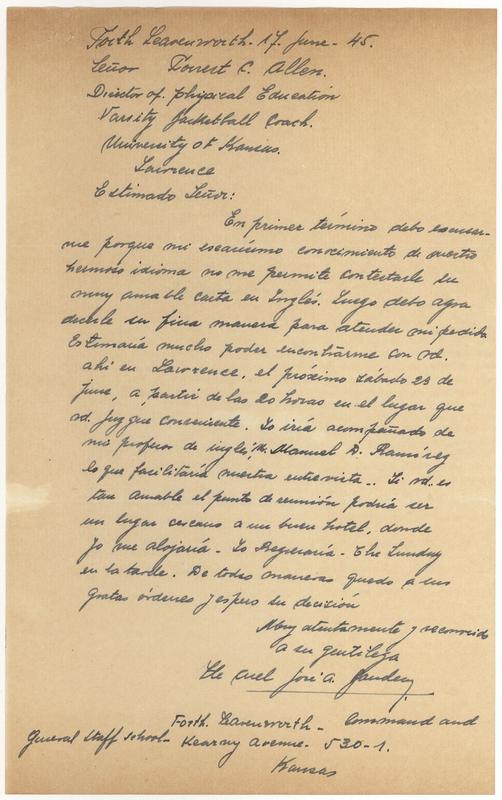 Forth Leavenworth. 17. June - 45.
Señor Forrest C. Allen.
Director of Physical Education
Varsity Basketball Coach.
University of Kansas.
Lawrence
Estimado Señor:
En primer término debo escusar-
me porque mi escasísimo conocimiento de vuestro
hermoso idioma no me permite contestarle su
muy amable carta en Inglés. Luego debo agra
decerle su fina manera para atender mi pedido
Estimaría mucho poder encontrarme con vd.
ahí en Lawrence, el próximo sábado 23 de
June, a partir de las 20 horas en el lugar que
vd. juzgue conveniente. Yo iría acompañado de
mi profesor de inglés, Mr. Manuel D. Ramírez
lo que facilitaría nuestra entrevista.. Si vd. es
tan amable el punto de reunión podría ser
un lugar cercano a un buen hotel, donde
yo me alojaría - Yo Regresaría - The Sunday
en la tarde. De todas maneras quedo a sus
gratas órdenes y espero su decisión
Muy atentamente y reconocido
a su gentileza
José A.
Forth. Leavenworth - Command and
General Staff School - Kearny Avenue - 530-1.
Kansas